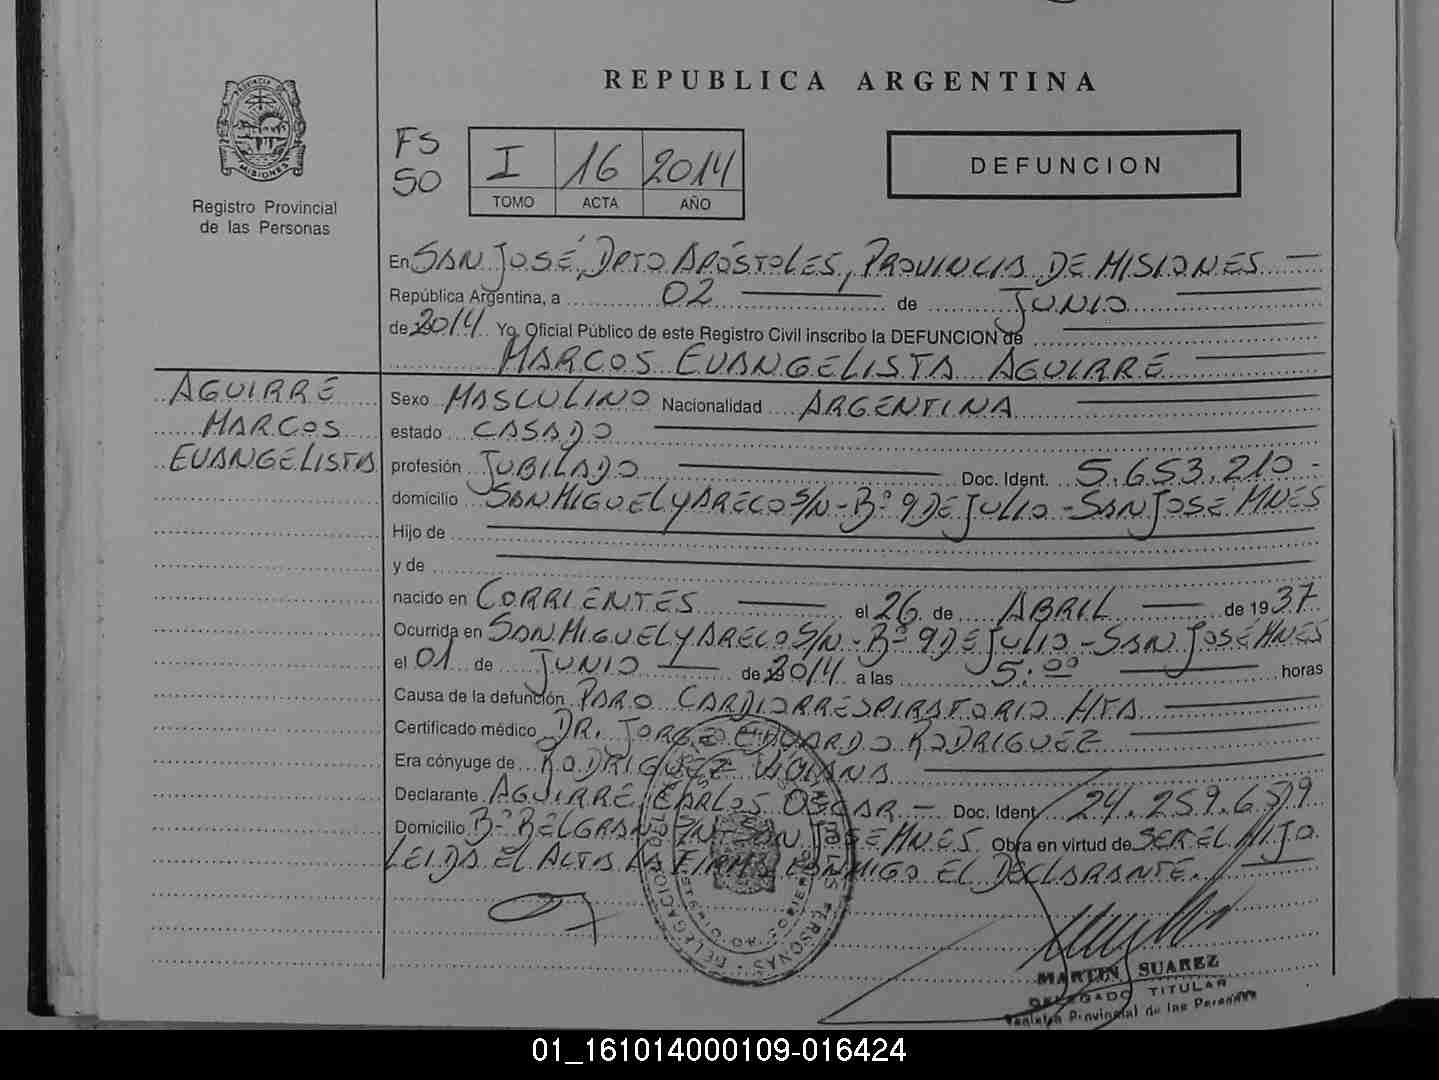 REPUBLICA ARGENTINA
PROVINCIA DE
MISIONES
Registro Provincial
de las Personas
FS
50
I 16 2014
TOMO ACTA AÑO
DEFUNCION
En SAN JOSÉ, DPTO APÓSTOLES, PROVINCIA DE MISIONES
República Argentina, a 02 de JUNIO
de 2014 Yo, Oficial Público de este Registro Civil inscribo la DEFUNCION de
MARCOS EVANGELISTA AGUIRRE
AGUIRRE
MARCOS
EVANGELISTA
Sexo MASCULINO Nacionalidad ARGENTINA
estado CASADO
profesión JUBILADO Doc. Ident. 5.653.210-
domicilio SAN MIGUEL Y ARECO S/N - Bº 9 DE JULIO - SAN JOSE MNES
Hijo de
y de
nacido en CORRIENTES el 26 de ABRIL de 1937
Ocurrida en SAN MIGUEL Y ARECO S/N - Bº 9 DE JULIO - SAN JOSÉ MNES
el 01 de JUNIO de 2014 a las 5:00 horas
Causa de la defunción PARO CARDIORRESPIRATORIO HTA
Certificado médico DR. JORGE EDUARDO RODRIGUEZ
Era cónyuge de RODRIGUEZ VIVIANA
Declarante AGUIRRE, CARLOS OSCAR - Doc. Ident 24.259.659
Domicilio Bº BELGRANO S/N - SAN JOSE MNES. Obra en virtud de SER EL HIJO
LEIDA EL ACTA LA FIRMA CONMIGO EL DECLARANTE.
MARTIN SUAREZ
DELEGADO TITULAR
Registro Provincial de las Personas
01_161014000109-016424